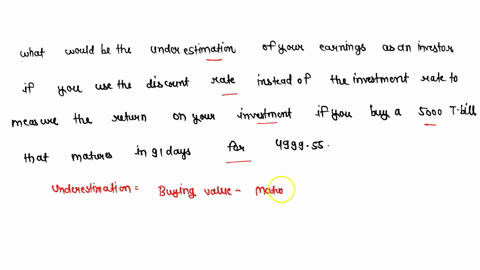 what would be the underestimation of your earnings as an investor
if you use the discount rate instead of the investment rate to
measure the return on your investment if you buy a 5000 T-bill
that matures in 91 days for 4999.55.
Underestimation = Buying value -